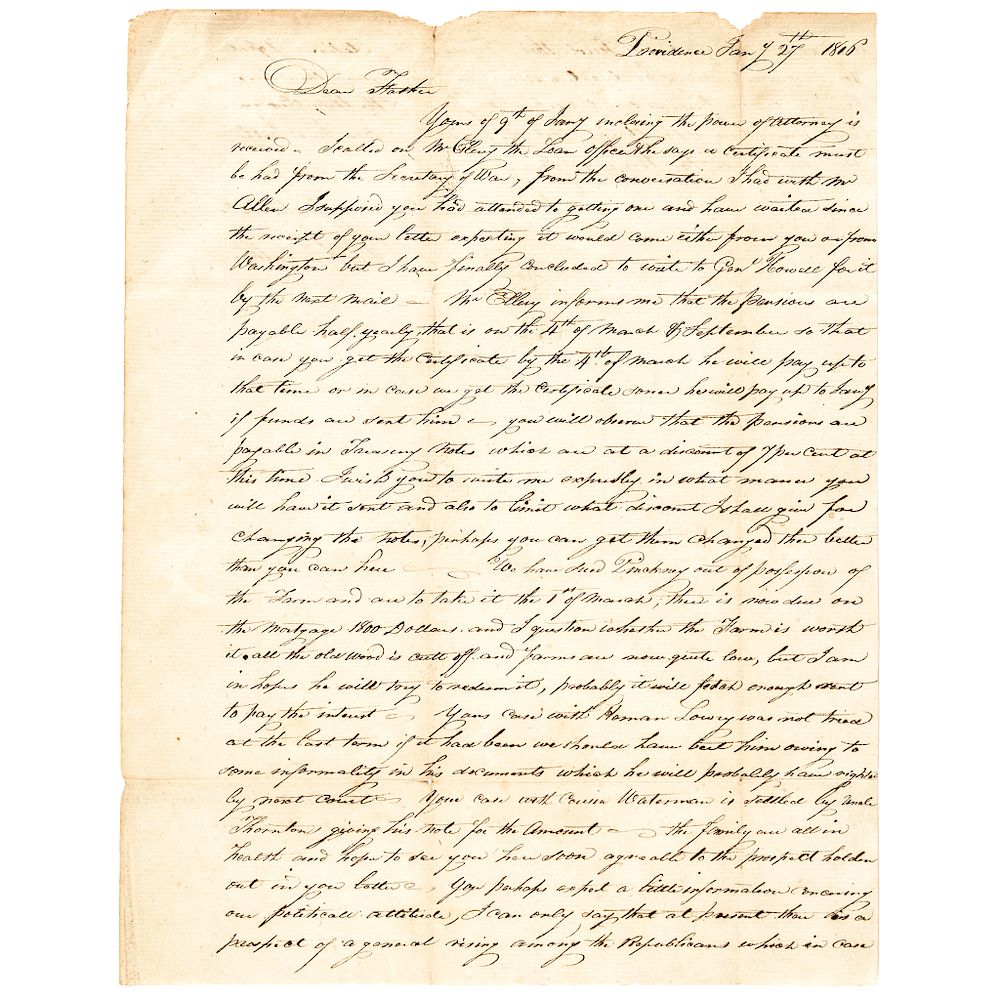 Providence Jany 27th 1816
Dear Father
Yours of 9th of Jany inclosing the power of Attorney is
received – I called on Mr Ellery the Loan Officer he says a certificate must
be had from the Secretary of War, from the conversation I had with Mr
Allen I supposed you had attended to getting one and have waited since
the receipt of your letter expecting it would come either from you or from
Washington but I have finally concluded to write to Genl Howell for it
by the next mail – Mr Ellery informs me that the pensions are
payable half yearly that is on the 4th of March & September so that
in case you get the certificate by the 4th of March he will pay up to
that time or in case we get the certificate soner he will pay up to Jany
if funds are sent him – you will observe that the pensions are
payable in Treasury Notes which are at a discount of 7 per cent at
this time I wish you to write me expressly in what manner you
will have it sent and also to limit what discount I shall give for
changing the notes, perhaps you can get them changed ther better
than you can here – We have sued Pinckney out of possession of
the Farm and are to take it the 1st of March, there is now due on
the mortgage 1800 Dollars and I question whether the Farm is worth
it. all the old wood is cutt off and farms are now quite low, but I am
in hopes he will try to redeem it, probably it will fetch enough rent
to pay the interest – Yours case with Heman Lowry was not tried
at the last term if it had been we should have beet him owing to
some informality in his documents which he will probably have righted
by next court – Your case with Cousin Waterman is settled by Uncle
Thornton giving his note for the amount – the family are all in
health and hope to see you here soon agreable to the prospect holden
out in your letter – You perhaps expect a little information
our politicall attitude, I can only say that at present there is a
prospect of a general rising among the Republicans which in case